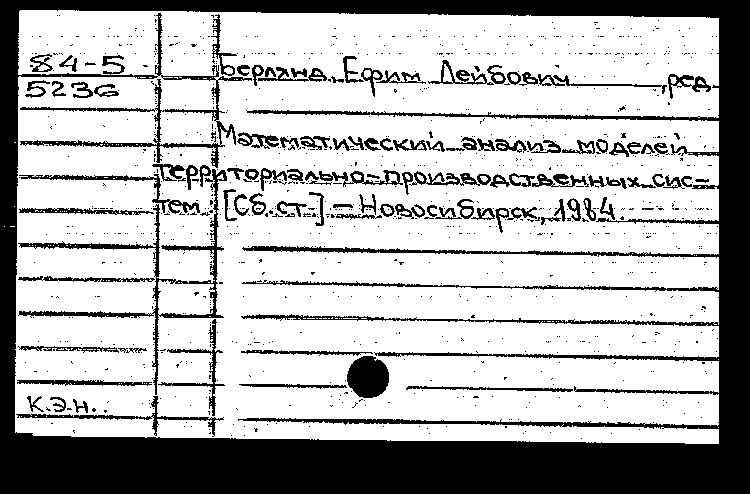 84-5 Берлянд, Ефим Лейбович ,ред.
5236
Математический анализ моделей
территориально-производственных сис-
тем: [Сб. ст.] – Новосибирск, 1984.
К.Э.Н..